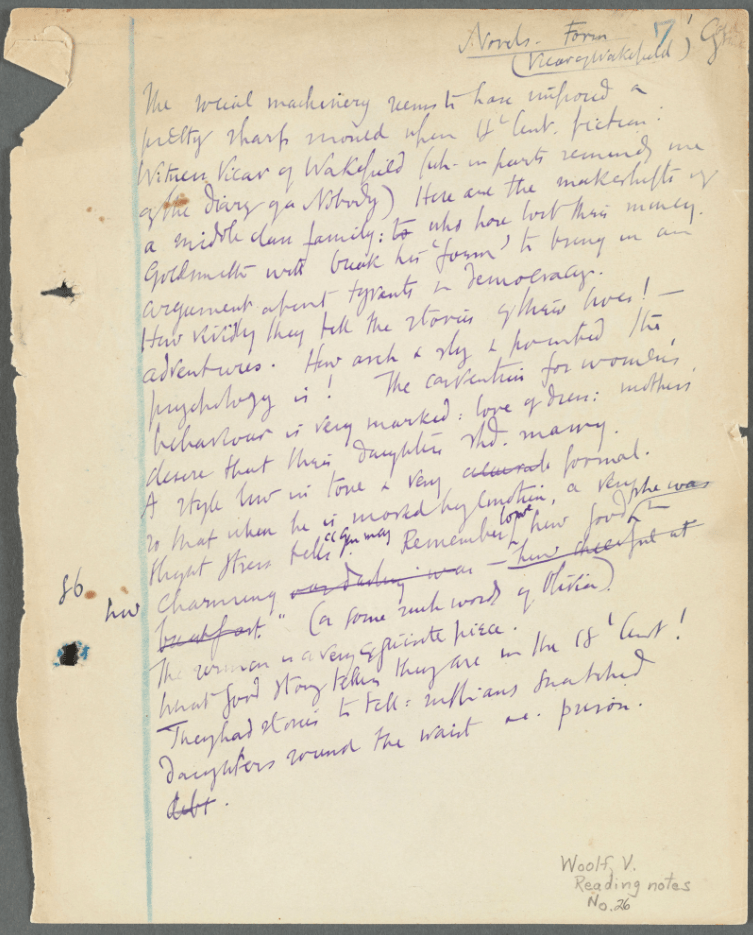 Novels. Form
(Vicar of Wakefield)
The social machinery seems to have imposed a
pretty sharp mould upon 18th Cent. fiction:
Witness Vicar of Wakefield (wh. in parts reminds me
of the Diary of a Nobody) Here are the makeshifts of
a middle class family: to who have lost their money.
Goldsmith will break his 'form' to bring in an
argument about tyrants & democracy.
How vividly they tell the stories of their lives! —
adventures. How arch & sly & pointed the
psychology is! The convention for women's
behaviour is very marked: love of dress: mothers'
desire that their daughters shd. marry.
A style low in tone & very formal.
so that when he is moved by emotion, a very
slight stress tells. Remember how good she was
86 how charming our darling was — how at
breakfast." (or some such words of Olivia).
The sermon is a very exquisite piece.
What good story tellers they are in the 18th Cent!
They had stories to tell: ruffians snatched
daughters round the waist prison.
debt.
Woolf, V.
Reading notes
No. 26